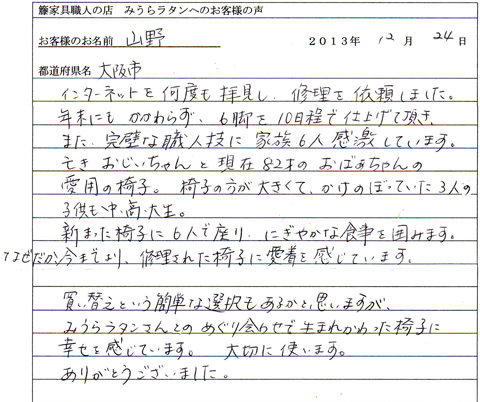 籐家具職人の店 みうらラタンへのお客様の声
お客様のお名前 山野 2013年 12月 24日
都道府県名 大阪市
インターネットを何度も拝見し、修理を依頼しました。
年末にもかかわらず、6脚を10日程で仕上げて頂き、
また、完璧な職人技に家族6人感激しています。
亡きおじいちゃんと現在82才のおばあちゃんの
愛用の椅子。椅子の方が大きくて、かけのぼっていた3人の
子供も、中・高・大生。
新まった椅子に6人で座り、にぎやかな食事を囲みます。
なぜだか今までより、修理された椅子に愛着を感じています。
買い替えという簡単な選択もあるかと思いますが、
みうらラタンさんとのめぐり合わせで生まれかわった椅子に
幸せを感じています。 大切に使います。
ありがとうございました。